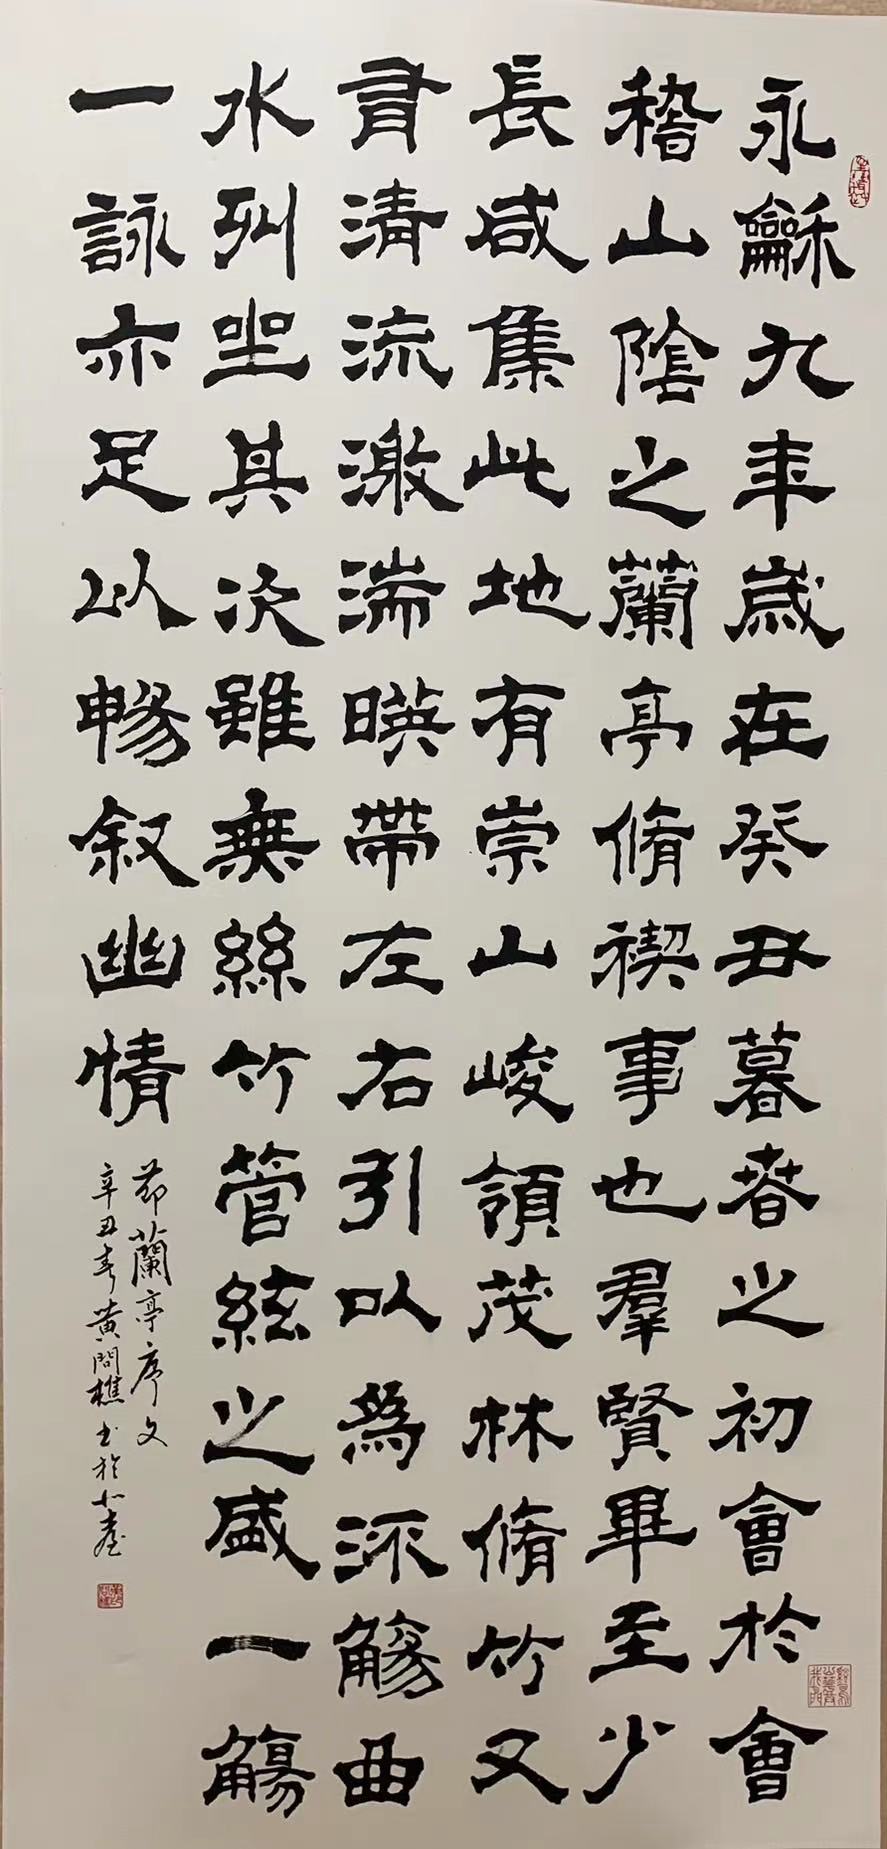 永龢九年歲在癸丑暮春之初會於會
稽山陰之蘭亭脩禊事也羣賢畢至少
長咸集此地有崇山峻領茂林脩竹又
有清流激湍暎帶左右引以為流觴曲
水列坐其次雖無絲竹管絃之盛一觴
一詠亦足以暢叙幽情
節蘭亭序文
辛丑春黃問樵書於